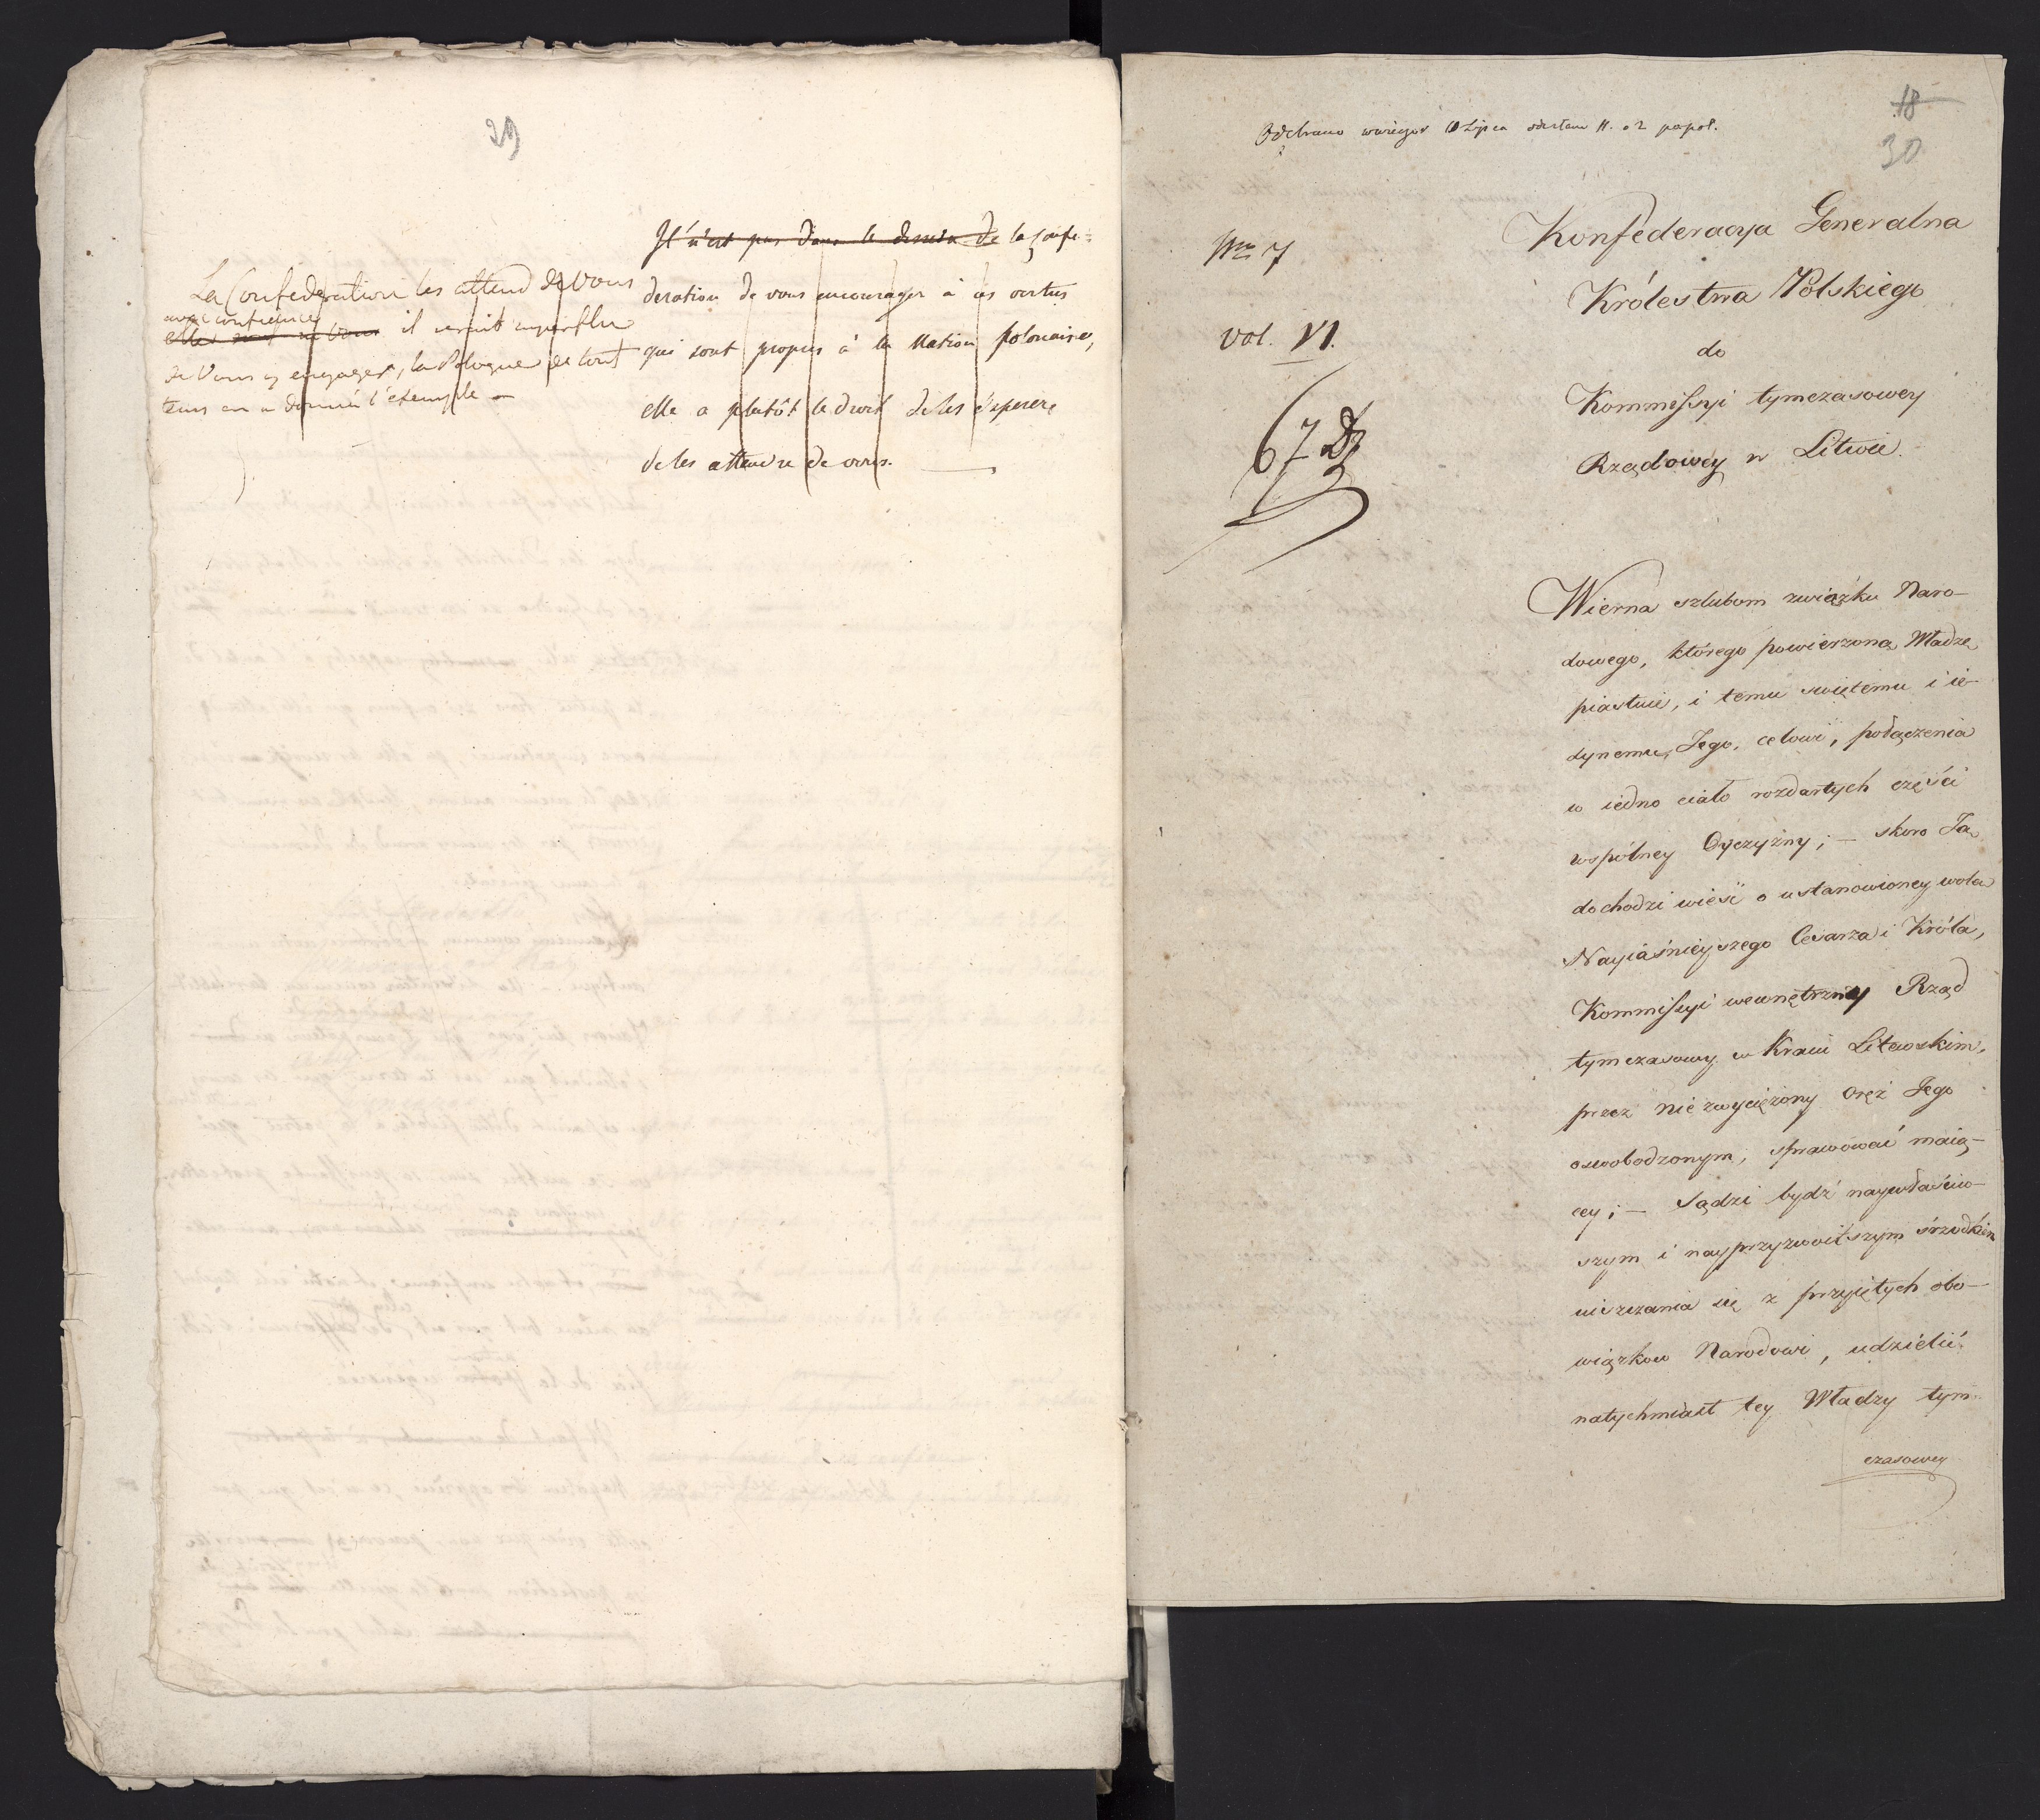 29
La Confederation les attend de vous
avec confiance
elles sont en vous il seroit superflu
de Vous y engager, la Pologne de tout
tems en a donné l'exemple —
Il n'est pas dans le dessein de la confe-
deration de vous encourager à ces vertus
qui sont propres à la Nation polonaise,
elle a plutôt le droit de les esperer,
de les attendre de vous. —
18
30
Odebrano 10 Lipca 11. o 2 popoł.
Nro 7
Vol. VI.
67
Konfederacya Generalna
Królestwa Polskiego
do
Kommissyi tymczasowey
Rządowey w Litwie.
Wierna szlubom związku Naro-
dowego, którego powierzoną Władzę
piastuie, i temu swiętemu i ie-
dynemu Jego, celowi, połączenia
w iedno ciało rozdartych części
wspólney Oyczyzny; — skoro Ją
dochodzi wieść o ustanowioney wolą
Nayiaśnieyszego Cesarza i Króla,
Kommissyi wewnętrzny Rząd
tymczasowy w Kraiu Litewskim,
przez niezwyciężony oręż Jego
oswobodzonym, sprawować maią-
cey; — Sądzi bydź naywłaściw-
szym i nayprzyzwoitszym śrzodkiem
uiszczania się z przyiętych obo-
wiązkow Narodowi, udzielić
natychmiast tey Władzy tym-
czasowey